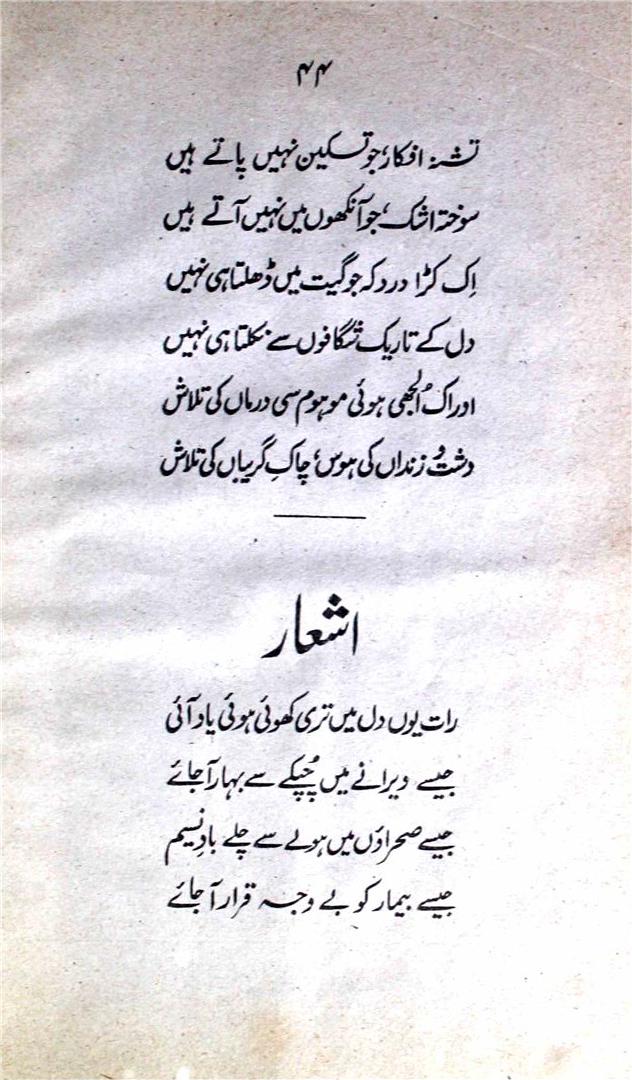 ۴۴
تشنہ افکار، جو تسکین نہیں پاتے ہیں
سوختہ اشک، جو آنکھوں میں نہیں آتے ہیں
اِک کڑا درد کہ جو گیت میں ڈھلتا ہی نہیں
دل کے تاریک شگافوں سے نکلتا ہی نہیں
اور اک اُلجھی ہوئی موہوم سی درماں کی تلاش
دشت و زنداں کی ہوس، چاکِ گریباں کی تلاش
اشعار
رات یوں دل میں تری کھوئی ہوئی یاد آئی
جیسے ویرانے میں چُپکے سے بہار آجائے
جیسے صحراؤں میں ہولے سے چلے بادِ نسیم
جیسے بیمار کو بے وجہ قرار آجائے